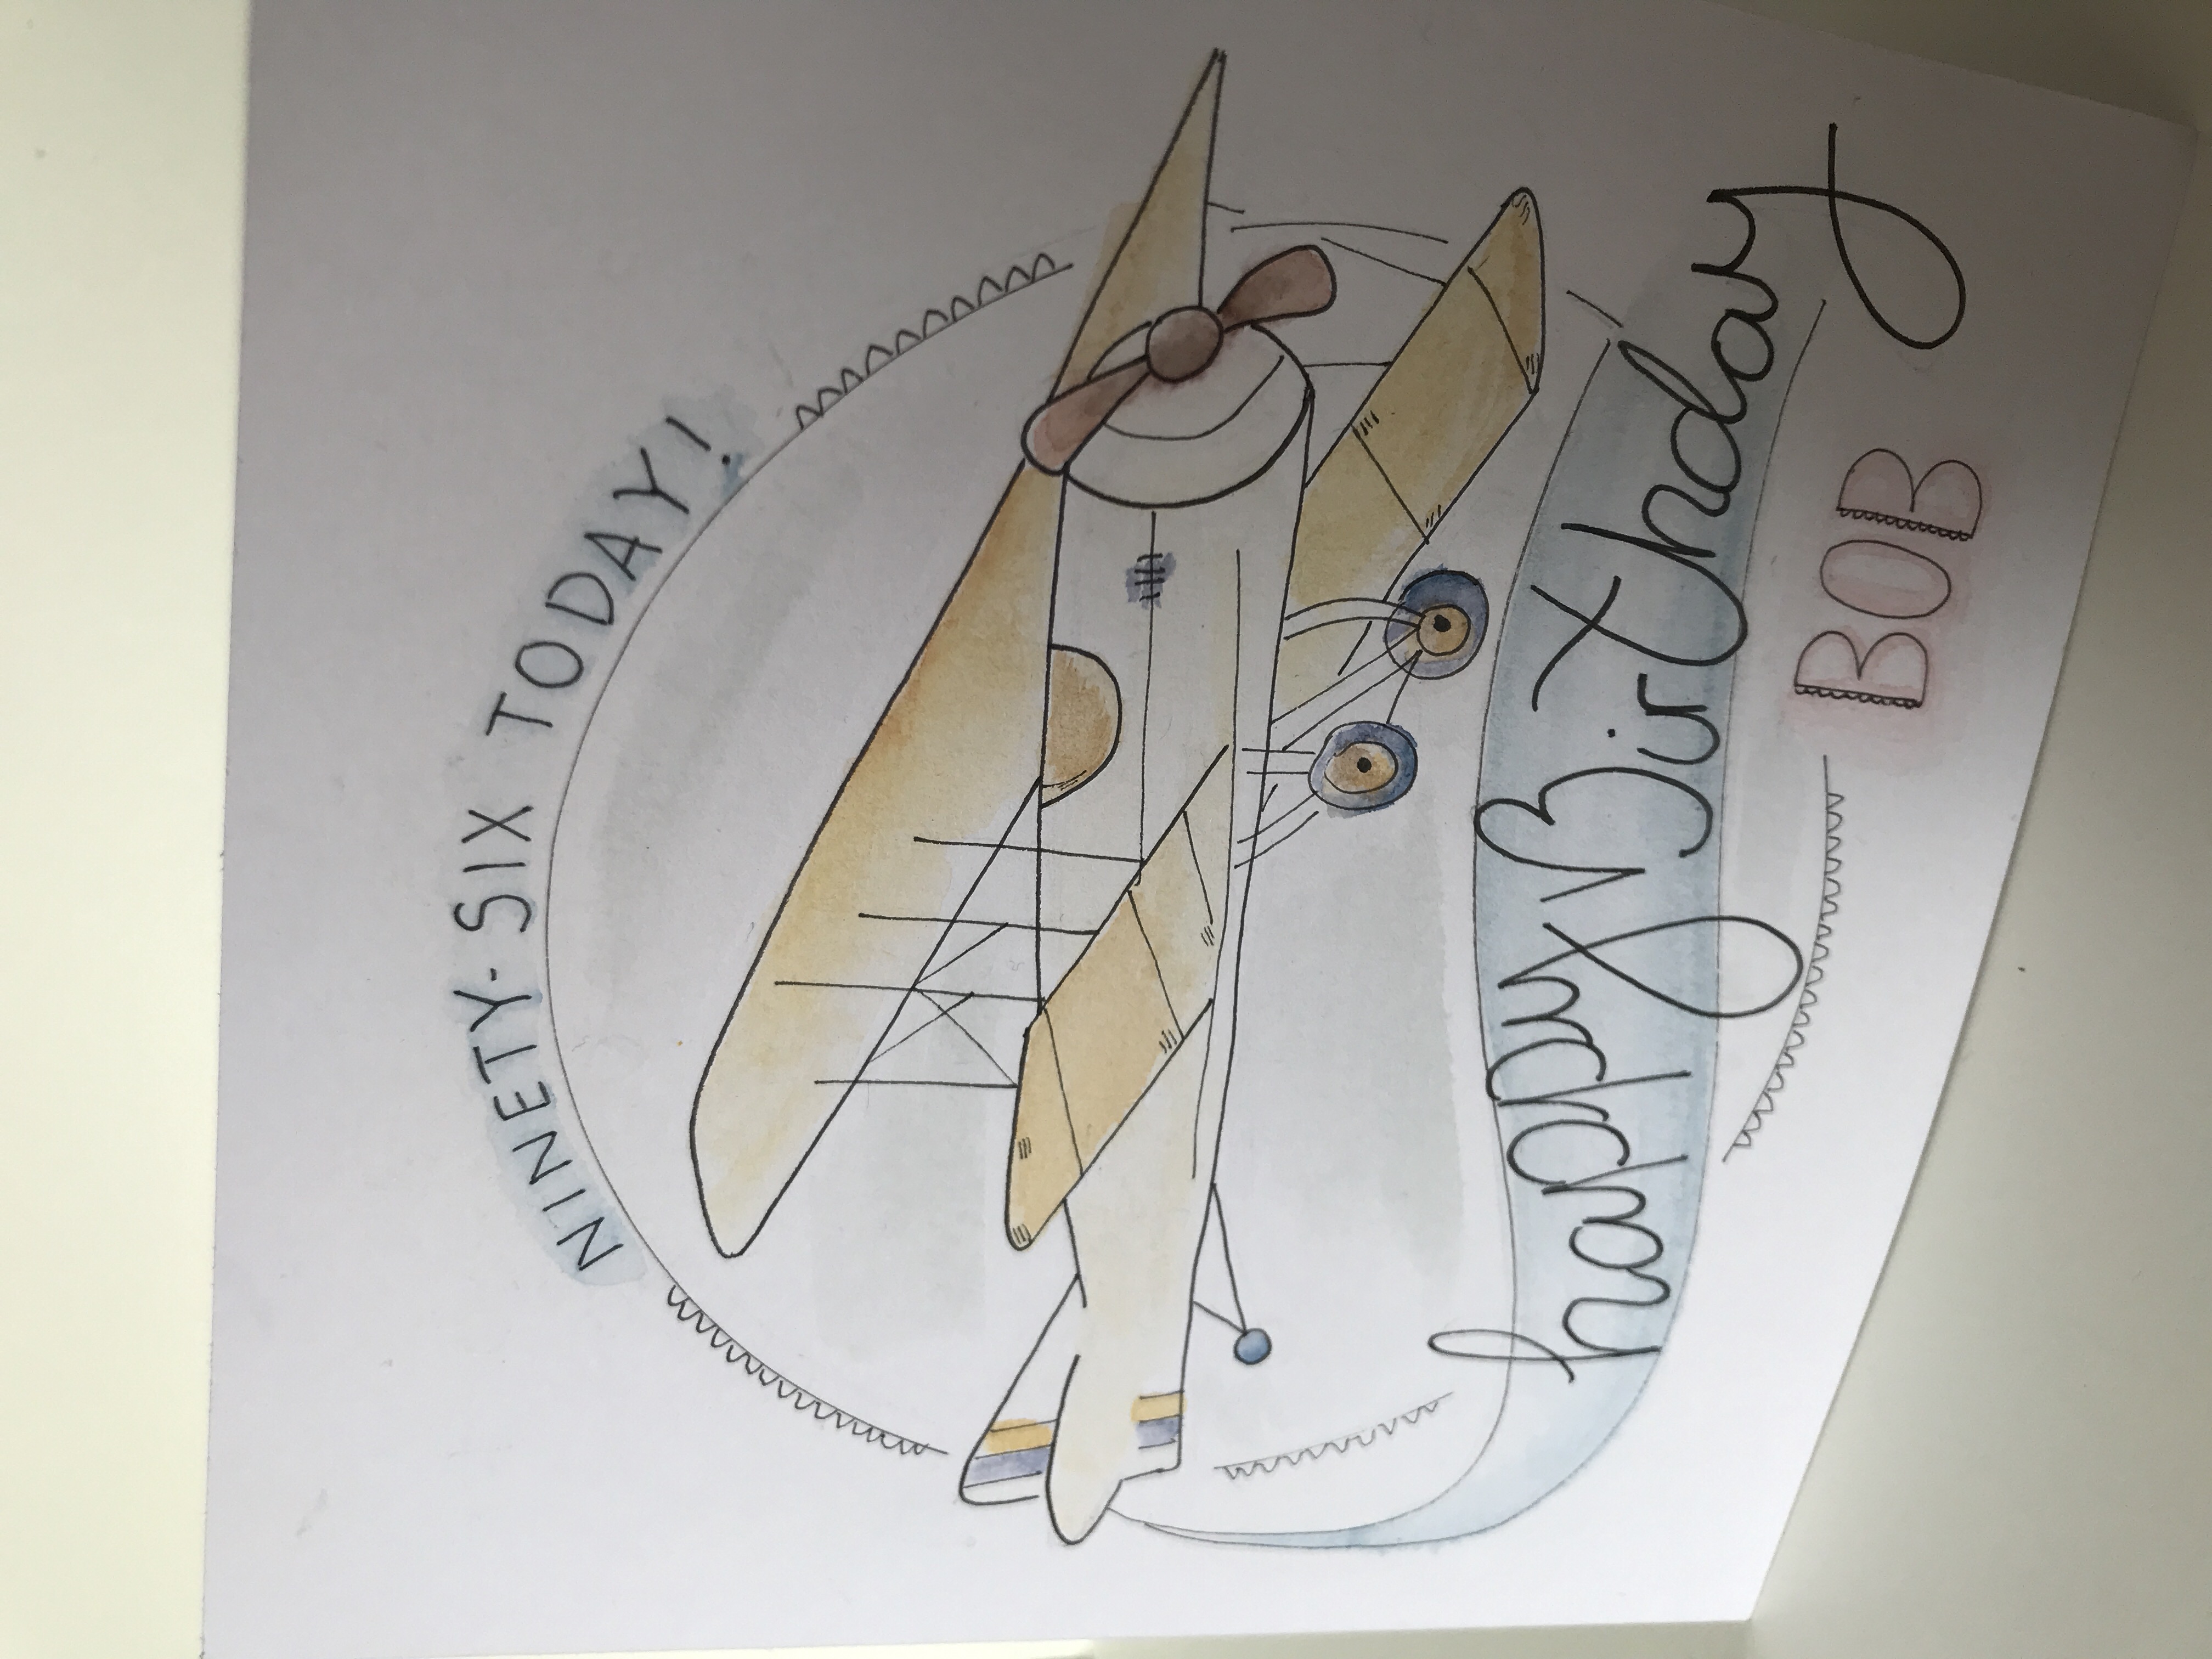 NINETY-SIX TODAY!
happy Birthday
BOB